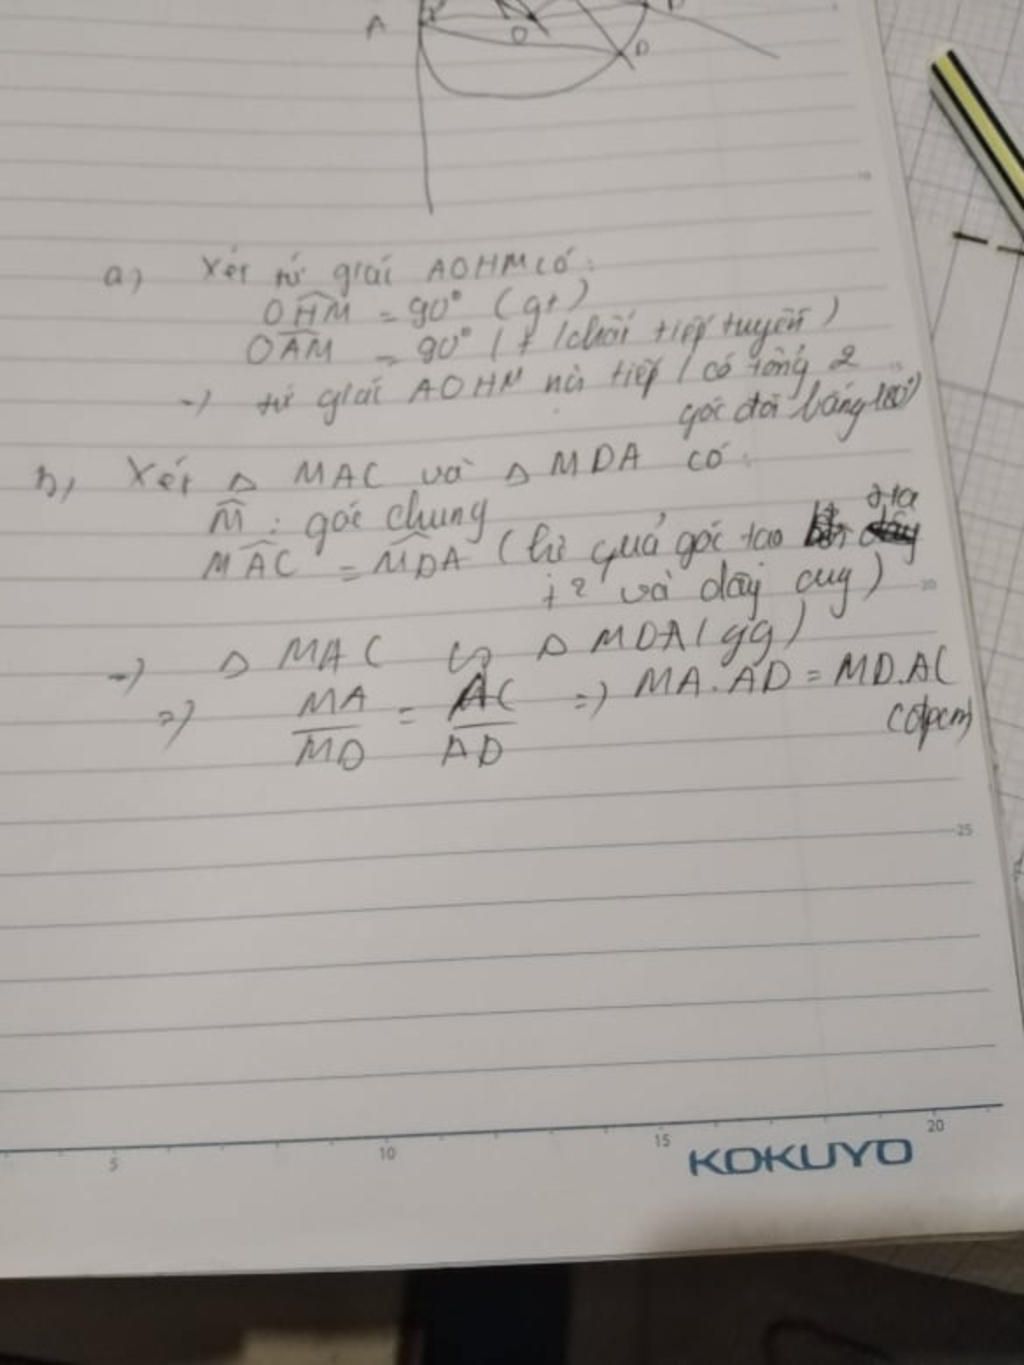 A
O
D
10
a) Xét tứ giác AOHM có:
OHM = 90° (gt)
OAM = 90° (t/chất tiếp tuyến)
-) tứ giác AOHM nội tiếp (có tổng 2
góc đối bằng 180°)
b) Xét Δ MAC và Δ MDA có:
M : góc chung
MAC = MDA (hệ quả góc tạo
và dây cug)
20
-) Δ MAC ∽ Δ MDA (gg)
=) MA/MD = AC/AD =) MA.AD = MD.AC
(đpcm)
25
5 10 15 20
KOKUYO